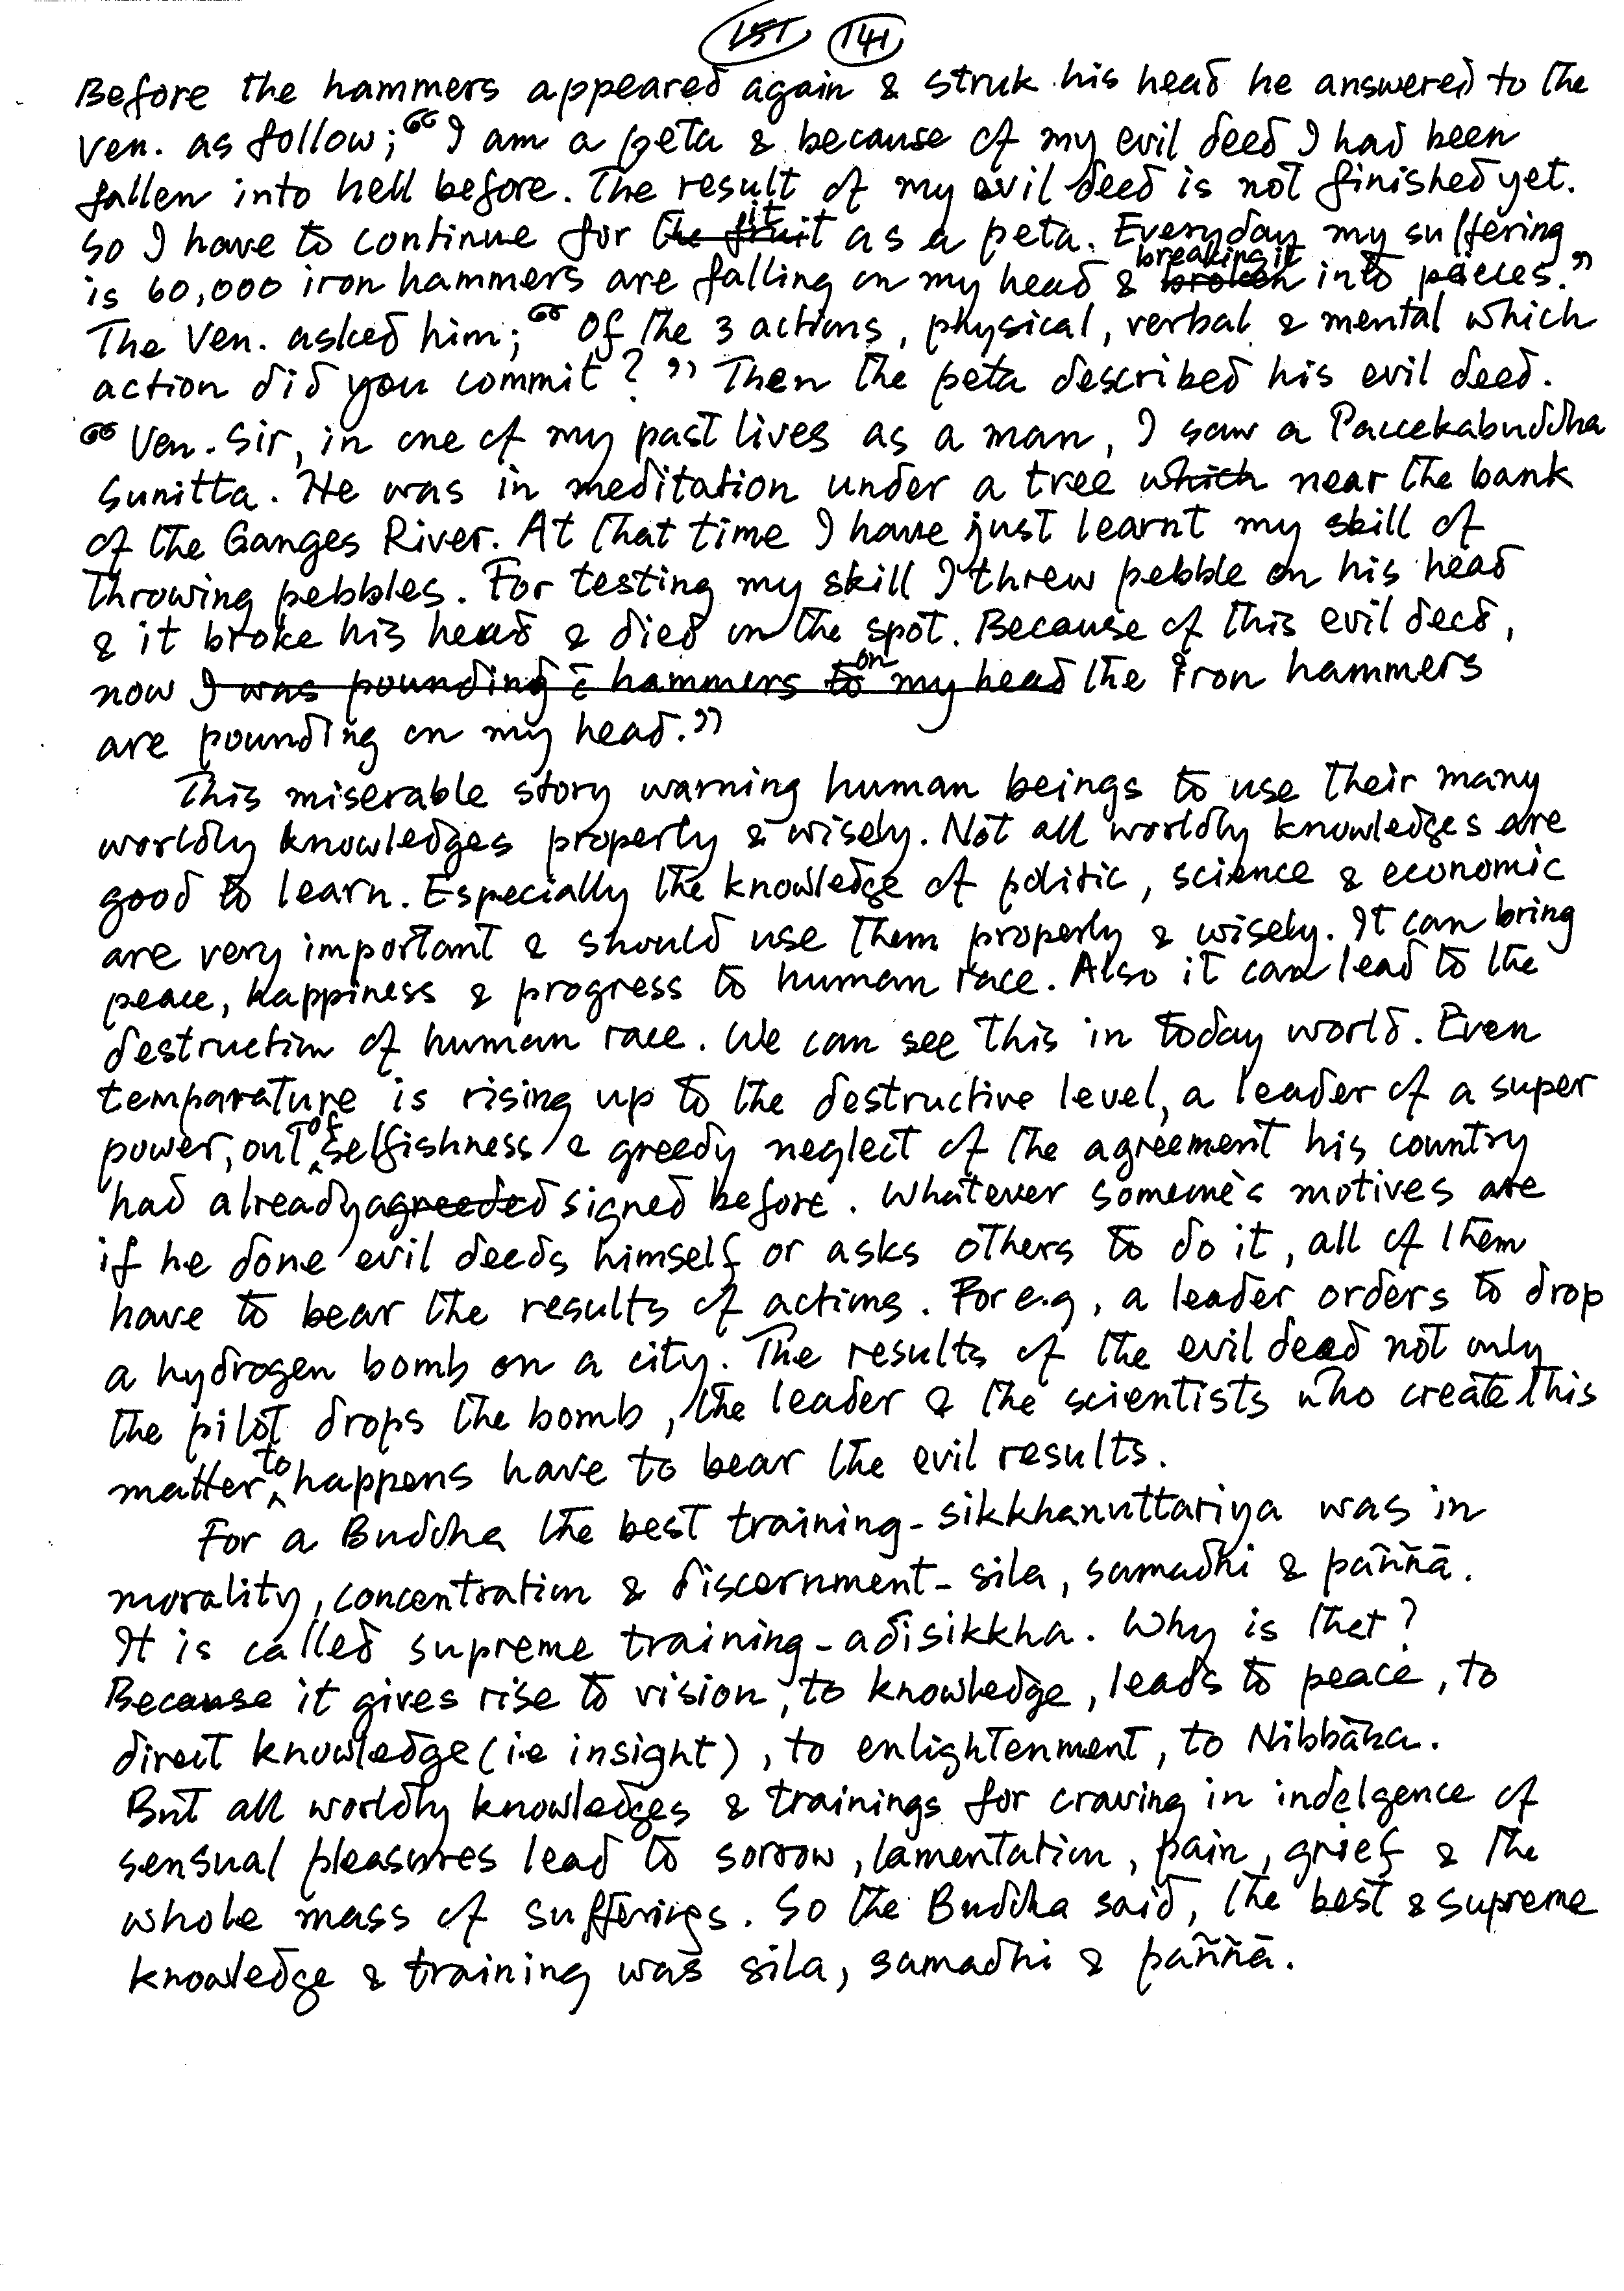 151 141
Before the hammers appeared again & struk his head he answered to the
Ven. as follow; “I am a peta & because of my evil deed I had been
fallen into hell before. The result of my evil deed is not finished yet.
So I have to continue for ~~the fruit~~ it as a peta. Everyday my suffering
is 60,000 iron hammers are falling on my head & ~~broken~~ breaking it into pieces.”
The Ven. asked him; “Of the 3 actions, physical, verbal & mental which
action did you commit?” Then the peta described his evil deed.
“Ven. Sir, in one of my past lives as a man, I saw a Paccekabuddha
Sunitta. He was in meditation under a tree ~~which~~ near the bank
of the Ganges River. At that time I have just learnt my skill of
throwing pebbles. For testing my skill I threw pebble on his head
& it broke his head & died on the spot. Because of this evil deed,
now ~~I was pounding c̄ hammers to on my head~~ the iron hammers
are pounding on my head.”
This miserable story warning human beings to use their many
worldly knowledges properly & wisely. Not all worldly knowledges are
good to learn. Especially the knowledge of politic, science & economic
are very important & should use them properly & wisely. It can bring
peace, happiness & progress to human race. Also it can lead to the
destruction of human race. We can see this in today world. Even
temparature is rising up to the destructive level, a leader of a super
power, out of selfishness & greedy neglect of the agreement his country
had already ~~agreeded~~ signed before. Whatever someone's motives are
if he done evil deeds himself or asks others to do it, all of them
have to bear the results of actions. For e.g, a leader orders to drop
a hydrogen bomb on a city. The results of the evil deed not only
the pilot drops the bomb, the leader & the scientists who create this
matter to happens have to bear the evil results.
For a Buddha the best training - sikkhanuttariya was in
morality, concentration & discernment - sila, samadhi & paññā.
It is called supreme training - adisikkha. Why is that?
Because it gives rise to vision, to knowledge, leads to peace, to
direct knowledge (i.e insight), to enlightenment, to Nibbāna.
But all worldly knowledges & trainings for craving in indelgence of
sensual pleasures lead to sorrow, lamentation, pain, grief & the
whole mass of sufferings. So the Buddha said, the best & supreme
knowledge & training was sila, samadhi & paññā.